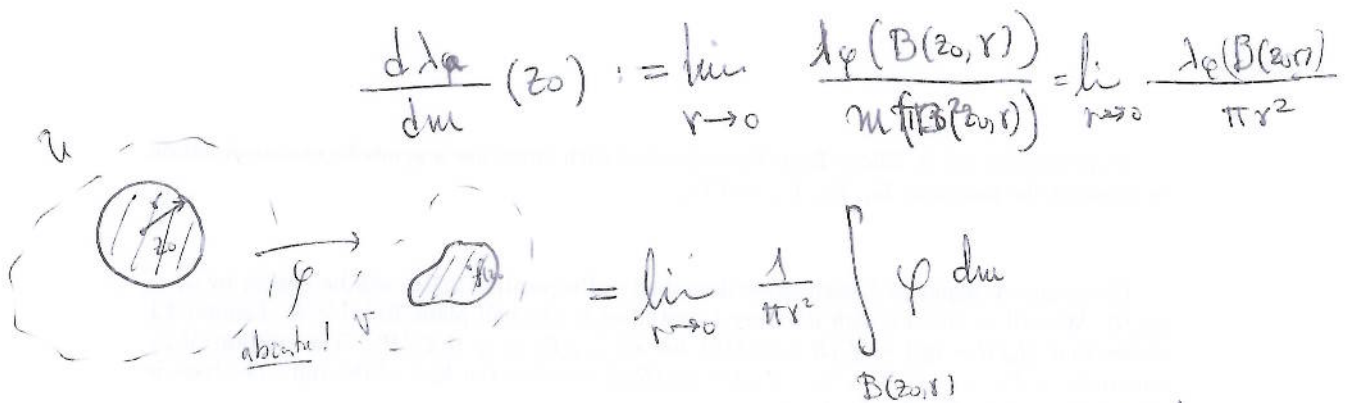 dλφ/dm (z₀) := lim r→0 λφ(B(z₀,r)) / m(B(z₀,r)) = li r→0 λφ(B(z₀,r)) / πr²
U
r
z₀
φ
V
abierta!
= lim r→0 1/πr² ∫ B(z₀,r) φ dm